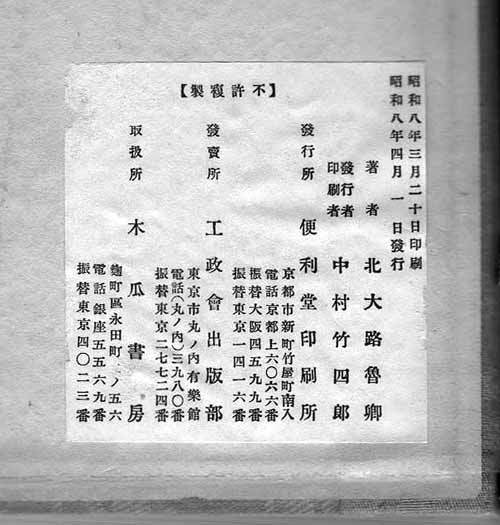 【不許複製】
昭和八年三月二十日印刷
昭和八年四月一日發行
著者 北大路魯卿
發行者
印刷者 中村竹四郎
發行所 便利堂印刷所
京都市新町竹屋町南入
電話京都上六〇六六番
振替大阪四五九九番
振替東京一四一六番
發賣所 工政會出版部
東京市丸ノ内有樂館
電話(丸ノ内)三九八〇番
振替東京二七七二四番
取扱所 木瓜書房
麹町區永田町二ノ五六
電話銀座五五六九番
振替東京四〇二三番